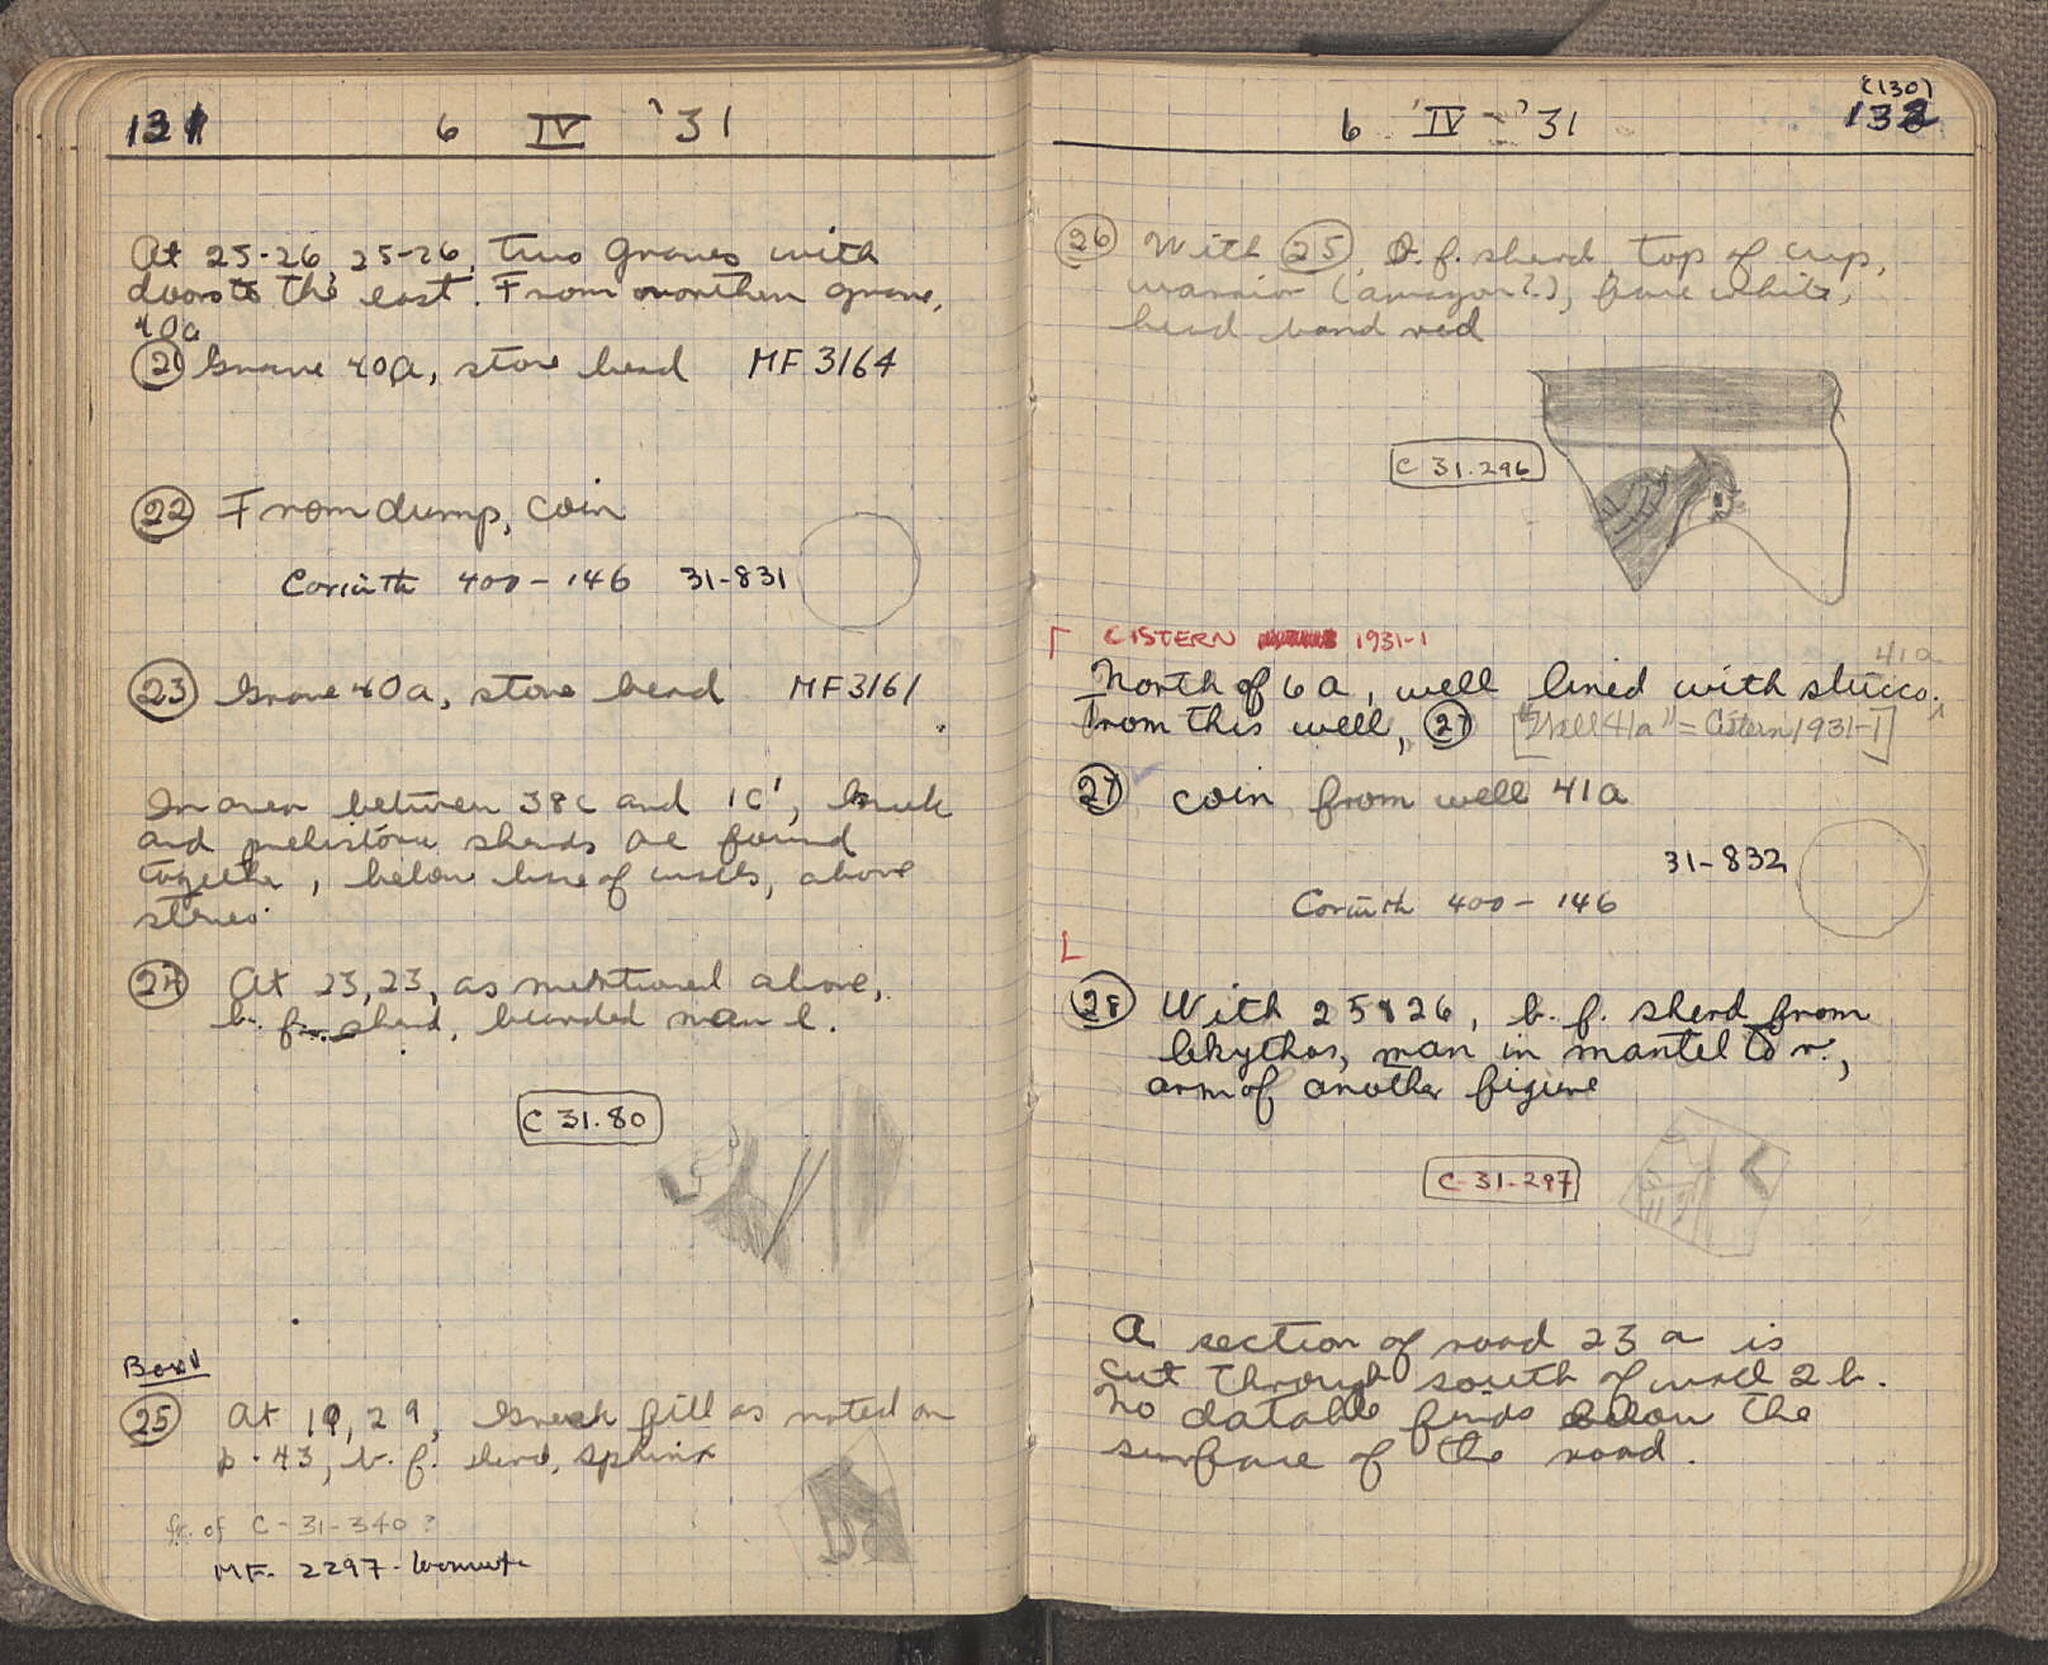 131 6 IV '31
At 25-26, 25-26, two graves with
doors to the east. From northern grave,
40a
21 Grave 40a, stone bead MF 3164
22 From dump, coin
Corinth 400-146 31-831
23 Grave 40a, stone bead MF 3161
In area between 38c and 1c', Greek
and prehistoric sherds are found
together, below line of walls, above
stereo.
24 At 23, 23, as mentioned above,
b. f. sherd, bearded man l.
C 31.80
Box 1
25 At 19, 29, Greek fill as noted on
p. 43, b. f. sherd, sphinx
fr. of C-31-340?
MF. 2297.
(130)
6 IV - '31 132
26 With 25, b. f. sherd, top of cup,
warrior (amazon?), face white,
head band red
C 31.296
CISTERN 1931-1
41a
North of 6a, well lined with stucco.
From this well, 27 ["Well 41a" = Cistern 1931-1]
27 coin from well 41a
31-832
Corinth 400-146
28 With 25 & 26, b. f. sherd from
lekythos, man in mantel to r.,
arm of another figure
C-31-297
A section of road 23a is
cut through south of wall 2b.
No datable finds below the
surface of the road.